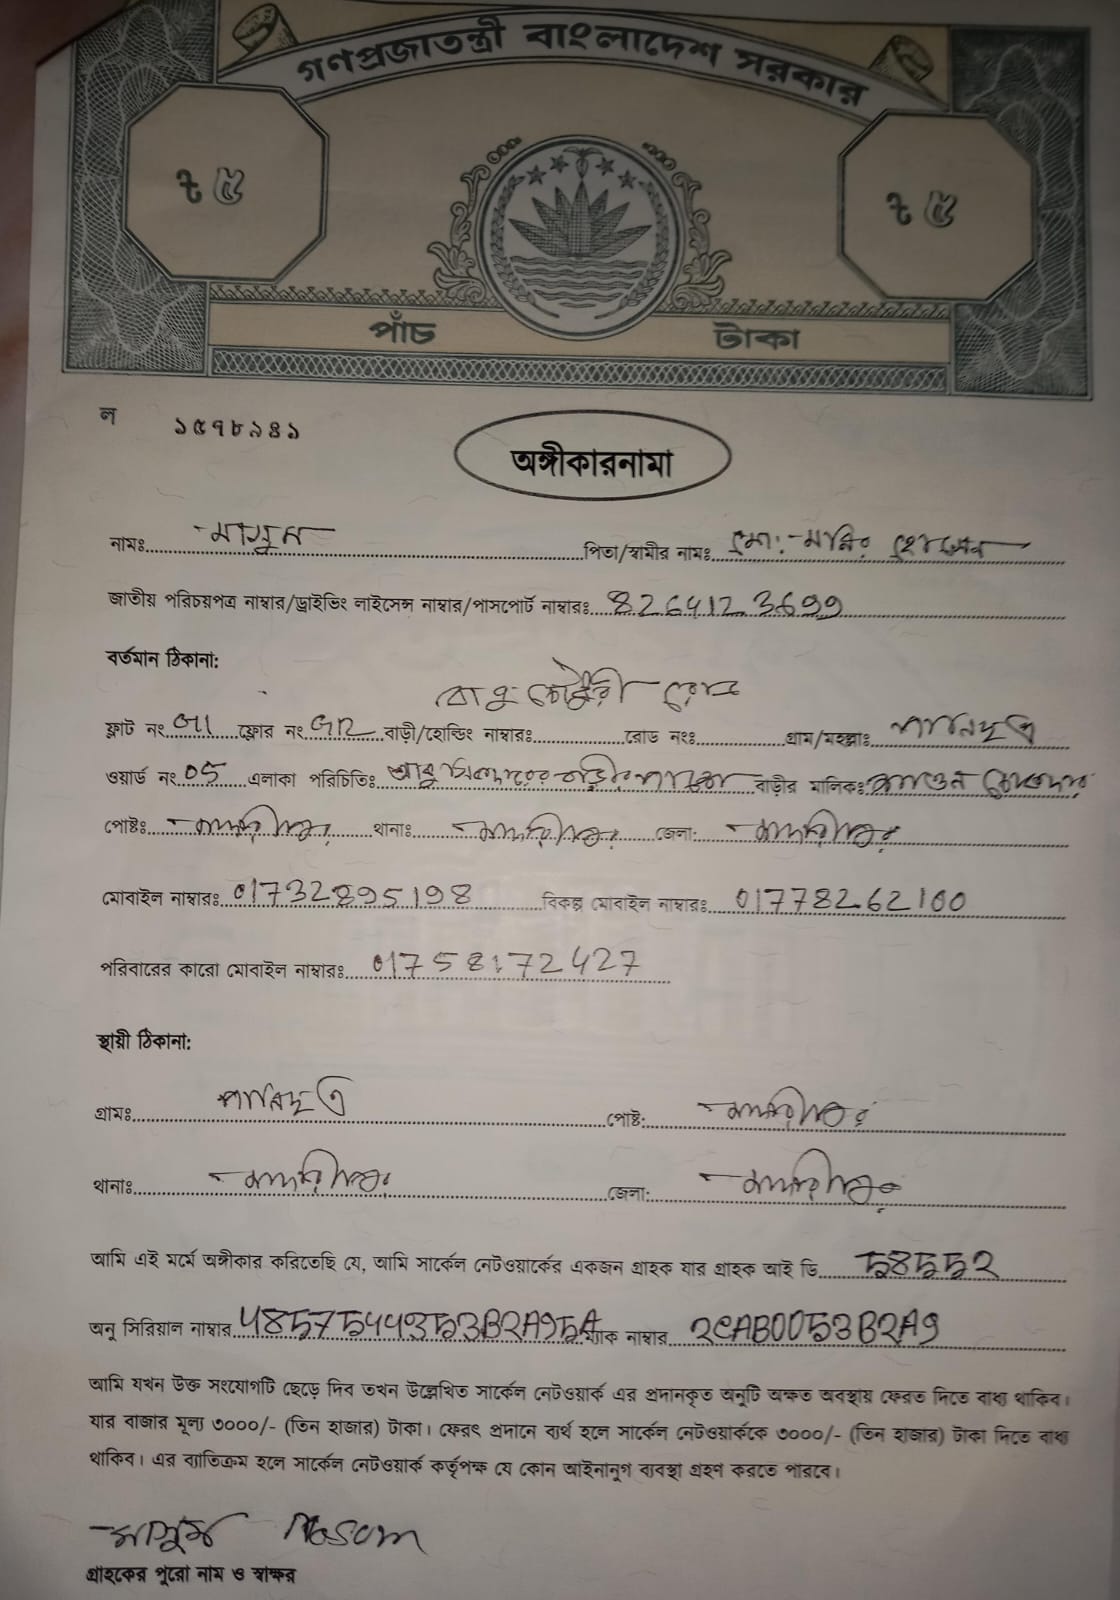 গণপ্রজাতন্ত্রী বাংলাদেশ সরকার
৳ ৫ ৳ ৫
পাঁচ টাকা
ল ১৫৭৮৯৪১
অঙ্গীকারনামা
নামঃ মাসুম পিতা/স্বামীর নামঃ মোঃ মনির হোসেন
জাতীয় পরিচয়পত্র নাম্বার/ড্রাইভিং লাইসেন্স নাম্বার/পাসপোর্ট নাম্বারঃ 8264123699
বর্তমান ঠিকানা:
চৌধুরী রোড
ফ্লাট নং ফ্লোর নং বাড়ী/হোল্ডিং নাম্বারঃ রোড নংঃ গ্রাম/মহল্লাঃ
ওয়ার্ড নং 05 এলাকা পরিচিতিঃ বাড়ীর মালিকঃ
পোষ্টঃ থানাঃ জেলা:
মোবাইল নাম্বারঃ 01732895198 বিকল্প মোবাইল নাম্বারঃ 01778262100
পরিবারের কারো মোবাইল নাম্বারঃ 01758172427
স্থায়ী ঠিকানা:
গ্রামঃ পোষ্ট:
থানাঃ জেলা:
আমি এই মর্মে অঙ্গীকার করিতেছি যে, আমি সার্কেল নেটওয়ার্কের একজন গ্রাহক যার গ্রাহক আই ডি 58552
অনু সিরিয়াল নাম্বার 4857544353B2A95A ম্যাক নাম্বার 2CAB0053B2A9
আমি যখন উক্ত সংযোগটি ছেড়ে দিব তখন উল্লেখিত সার্কেল নেটওয়ার্ক এর প্রদানকৃত অনুটি অক্ষত অবস্থায় ফেরত দিতে বাধ্য থাকিব।
যার বাজার মূল্য ৩০০০/- (তিন হাজার) টাকা। ফেরৎ প্রদানে ব্যর্থ হলে সার্কেল নেটওয়ার্ককে ৩০০০/- (তিন হাজার) টাকা দিতে বাধ্য
থাকিব। এর ব্যাতিক্রম হলে সার্কেল নেটওয়ার্ক কর্তৃপক্ষ যে কোন আইনানুগ ব্যবস্থা গ্রহণ করতে পারবে।
মাসুম
গ্রাহকের পুরো নাম ও স্বাক্ষর